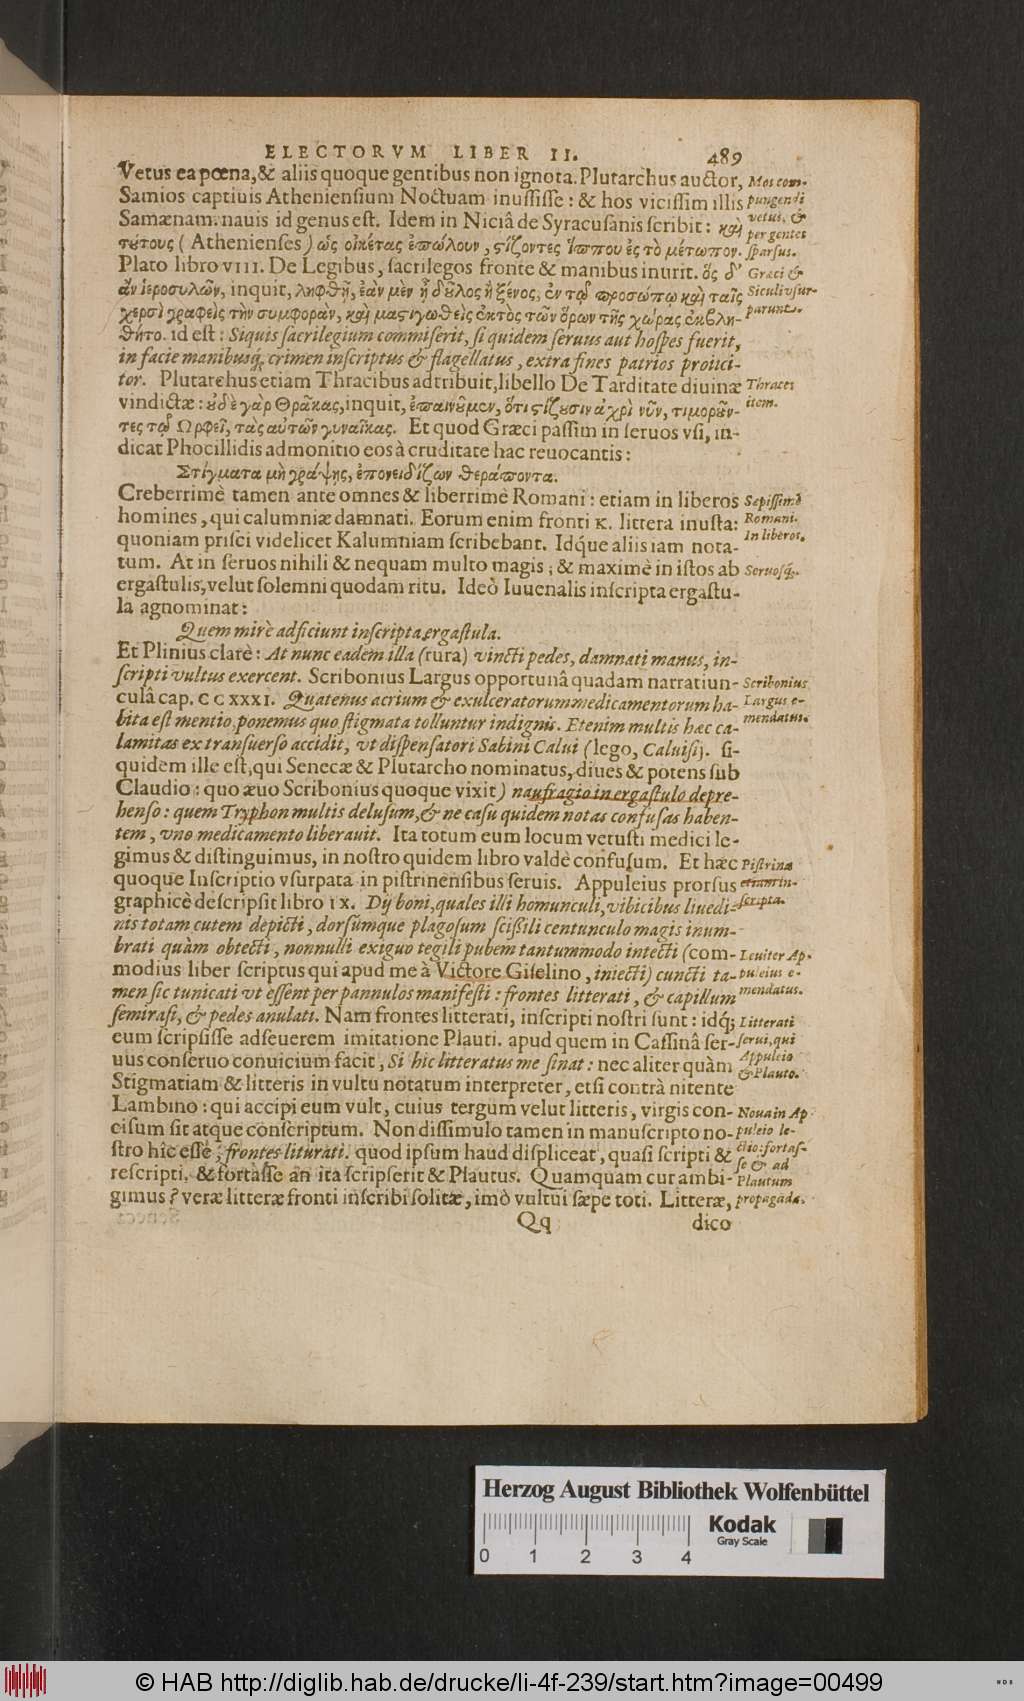 ELECTORVM LIBER II. 489
Vetus ea pœna, & aliis quoque gentibus non ignota. Plutarchus auctor,
Samios captiuis Atheniensium Noctuam inussisse: & hos vicissim illis
Samænam. nauis id genus est. Idem in Niciâ de Syracusanis scribit: καὶ
τούτους (Athenienses) ὡς οἰκέτας ἐπώλουν, στίζοντες ἵππου ἐς τὸ μέτωπον.
Plato libro VIII. De Legibus, sacrilegos fronte & manibus inurit. ὅς δ'
ἂν ἱεροσυλῶν, inquit, ληφθῇ, ἐὰν μὲν ᾖ δοῦλος ἢ ξένος, ἐν τῷ προσώπῳ καὶ ταῖς
χερσὶ γραφεὶς τὴν συμφορὰν, καὶ μαστιγωθεὶς ἐκτὸς τῶν ὅρων τῆς χώρας ἐκβλη-
θήτο. id est: Siquis sacrilegium commiserit, si quidem seruus aut hospes fuerit,
in facie manibusq́; crimen inscriptus & flagellatus, extra fines patrios proiici-
tor. Plutarchus etiam Thracibus adtribuit, libello De Tarditate diuinæ
vindictæ: οὐδὲ γὰρ Θρᾷκας, inquit, ἐπαινοῦμεν, ὅτι στίζουσιν ἀχρὶ νῦν, τιμοροῦν-
τες τῷ Ωρφεῖ, τὰς αὑτῶν γυναῖκας. Et quod Græci passim in seruos vsi, in-
dicat Phocillidis admonitio eos à cruditate hac reuocantis:
Στίγματα μὴ γράψῃς, ἐπονειδίζων θεράποντα.
Creberrimè tamen ante omnes & liberrimè Romani: etiam in liberos
homines, qui calumniæ damnati. Eorum enim fronti K. littera inusta:
quoniam prisci videlicet Kalumniam scribebant. Idq́ue aliis iam nota-
tum. At in seruos nihili & nequam multo magis; & maximè in istos ab
ergastulis, velut solemni quodam ritu. Ideò Iuuenalis inscripta ergastu-
la agnominat:
Quem mirè adficiunt inscripta ergastula.
Et Plinius clarè: At nunc eadem illa (rura) vincti pedes, damnati manus, in-
scripti vultus exercent. Scribonius Largus opportunâ quadam narratiun-
culâ cap. CCXXXI. Quatenus acrium & exulceratorum medicamentorum ha-
bita est mentio, ponemus quo stigmata tolluntur indignis. Etenim multis hæc ca-
lamitas ex transuerso accidit, vt dispensatori Sabini Calui (lego, Caluisij. si-
quidem ille est, qui Senecæ & Plutarcho nominatus, diues & potens sub
Claudio: quo æuo Scribonius quoque vixit) naufragio in ergastulo depre-
henso: quem Tryphon multis delusum, & ne casu quidem notas confusas haben-
tem, vno medicamento liberauit. Ita totum eum locum vetusti medici le-
gimus & distinguimus, in nostro quidem libro valdè confusum. Et hæc
quoque Inscriptio vsurpata in pistrinensibus seruis. Appuleius prorsus
graphicè descripsit libro IX. Dij boni, quales illi homunculi, vibicibus liuedi-
nis totam cutem depicti, dorsúmque plagosum scissili centunculo magis inum-
brati quàm obtecti, nonnulli exiguo tegili pubem tantummodo intecti (com-
modius liber scriptus qui apud me à Victore Giselino, iniecti) cuncti ta-
men sic tunicati vt essent per pannulos manifesti: frontes litterati, & capillum
semirasi, & pedes anulati. Nam frontes litterati, inscripti nostri sunt: idq́;
eum scripsisse adseuerem imitatione Plauti. apud quem in Cassinâ ser-
uus conseruo conuicium facit, Si hic litteratus me sinat: nec aliter quàm
Stigmatiam & litteris in vultu notatum interpreter, etsi contrà nitente
Lambino: qui accipi eum vult, cuius tergum velut litteris, virgis con-
cisum sit atque conscriptum. Non dissimulo tamen in manuscripto no-
stro hîc esse, frontes liturati. quod ipsum haud displiceat, quasi scripti &
rescripti. & fortasse an ita scripserit & Plautus. Quamquam cur ambi-
gimus? veræ litteræ fronti inscribi solitæ, imò vultui sæpe toti. Litteræ,
Qq dico
Mos com-
pungendi
vetus, &
per gentes
sparsus.
Græci &
Siculi vsur-
parunt.
Thraces
item.
Sæpissimè
Romani.
In liberos,
Seruosq́;.
Scribonius
Largus e-
mendatus.
Pistrina
etiam in-
scripta.
Leuiter Ap-
puleius e-
mendatus.
Litterati
serui, qui
Appuleio
& Plauto.
Noua in Ap-
puleio le-
ctio: fortas-
se & ad
Plautum
propaganda.
Herzog August Bibliothek Wolfenbüttel
Kodak
Gray Scale
0 1 2 3 4
© HAB http://diglib.hab.de/drucke/li-4f-239/start.htm?image=00499